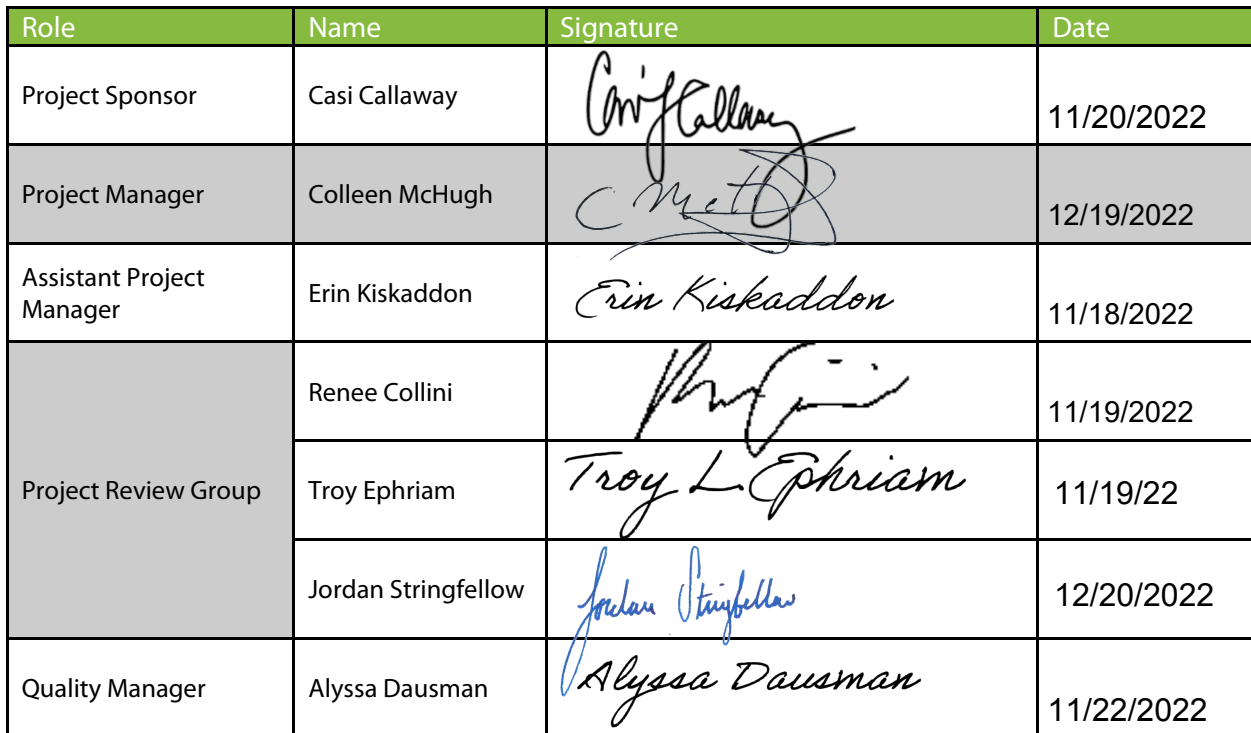 Role Name Signature Date
Project Sponsor Casi Callaway Casi Callaway 11/20/2022
Project Manager Colleen McHugh C McH 12/19/2022
Assistant Project
Manager
Erin Kiskaddon Erin Kiskaddon 11/18/2022
Project Review Group
Renee Collini 11/19/2022
Troy Ephriam Troy L. Ephriam 11/19/22
Jordan Stringfellow Jordan Stringfellow 12/20/2022
Quality Manager Alyssa Dausman Alyssa Dausman 11/22/2022